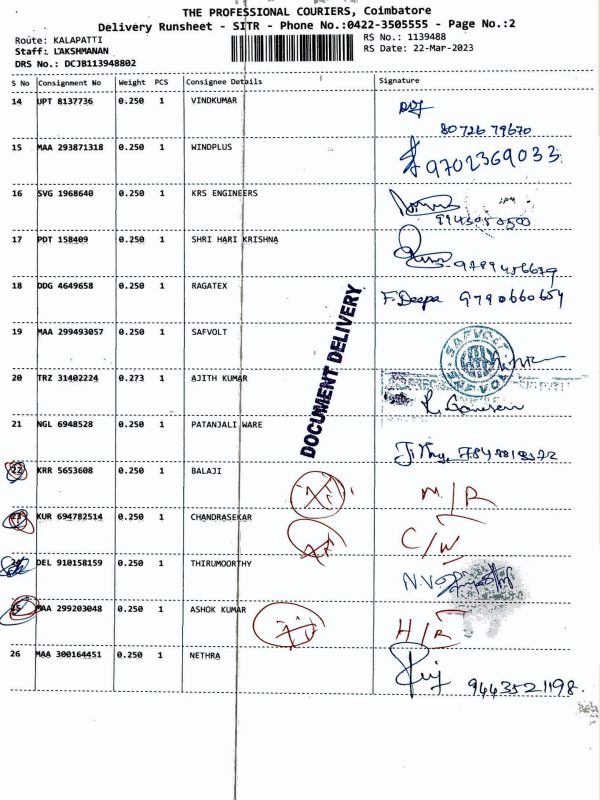 THE PROFESSIONAL COURIERS, Coimbatore
Delivery Runsheet - SITR - Phone No.:0422-3505555 - Page No.:2
Route: KALAPATTI
Staff: LAKSHMANAN
DRS No.: DCJB113948802
RS No.: 1139488
RS Date: 22-Mar-2023
S No Consignment No Weight PCS Consignee Details Signature
14 UPT 8137736 0.250 1 VINDKUMAR
80726 79670
15 MAA 293871318 0.250 1 WINDPLUS
9702369033
16 SVG 1968640 0.250 1 KRS ENGINEERS
17 PDT 158409 0.250 1 SHRI HARI KRISHNA
18 DDG 4649658 0.250 1 RAGATEX
F. Deepa 9790660654
19 MAA 299493057 0.250 1 SAFVOLT
SAFVOLT
20 TRZ 31402224 0.273 1 AJITH KUMAR
21 NGL 6948528 0.250 1 PATANJALI WARE
22 KRR 5653608 0.250 1 BALAJI
M/R
23 KUR 694782514 0.250 1 CHANDRASEKAR
C/W
24 DEL 910158159 0.250 1 THIRUMOORTHY
25 MAA 299203048 0.250 1 ASHOK KUMAR
H/R
26 MAA 300164451 0.250 1 NETHRA
9443521198
DOCUMENT DELIVERY